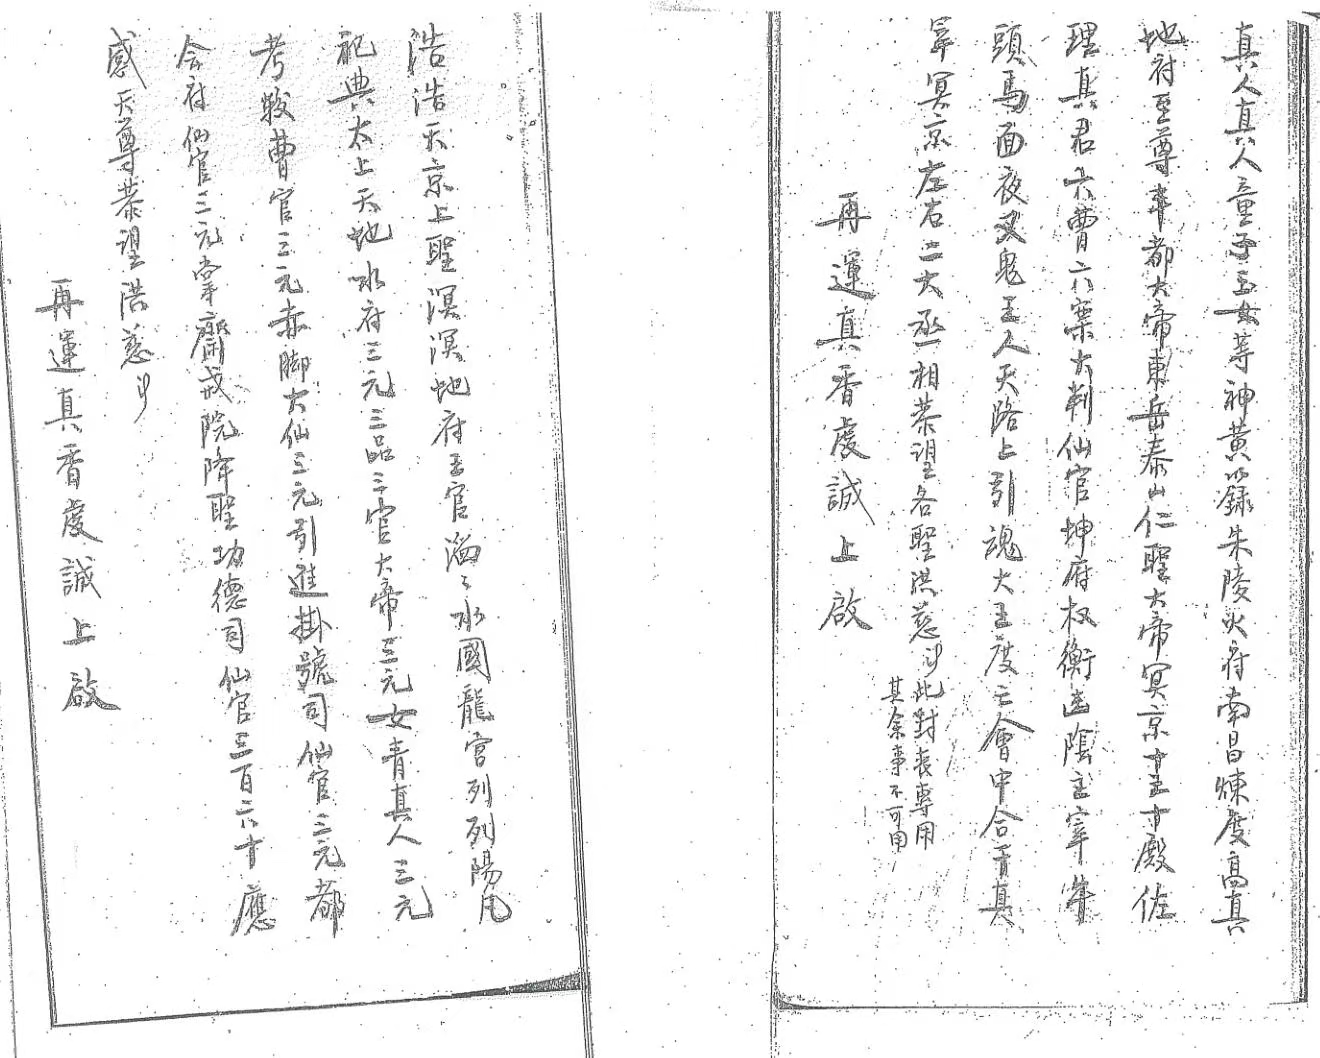 真人真人童子玉女等神黃籙朱陵火府南昌煉度高真
地府至尊丰都大帝東岳泰山仁聖大帝冥京十王十殿佐
理真君六曹六案大判仙官坤府权衡幽陰主宰牛
頭馬面夜叉鬼王人天路上引魂大王度亡會中合干真
宰冥京左右二大丞相恭望各聖洪慈
此對丧專用
其余事不可用
再運真香虔誠上啟
浩浩天京上聖溟溟地府王官滔〻水國龍宮列列陽凡
祀典太上天地水府三元三品三官大帝三元女青真人三元
考較曹官三元赤脚大仙三元引進掛號司仙官三元都
会府仙官三元掌齋戒院降聖功德司仙官三百六十應
感天尊恭望洪慈
再運真香虔誠上啟